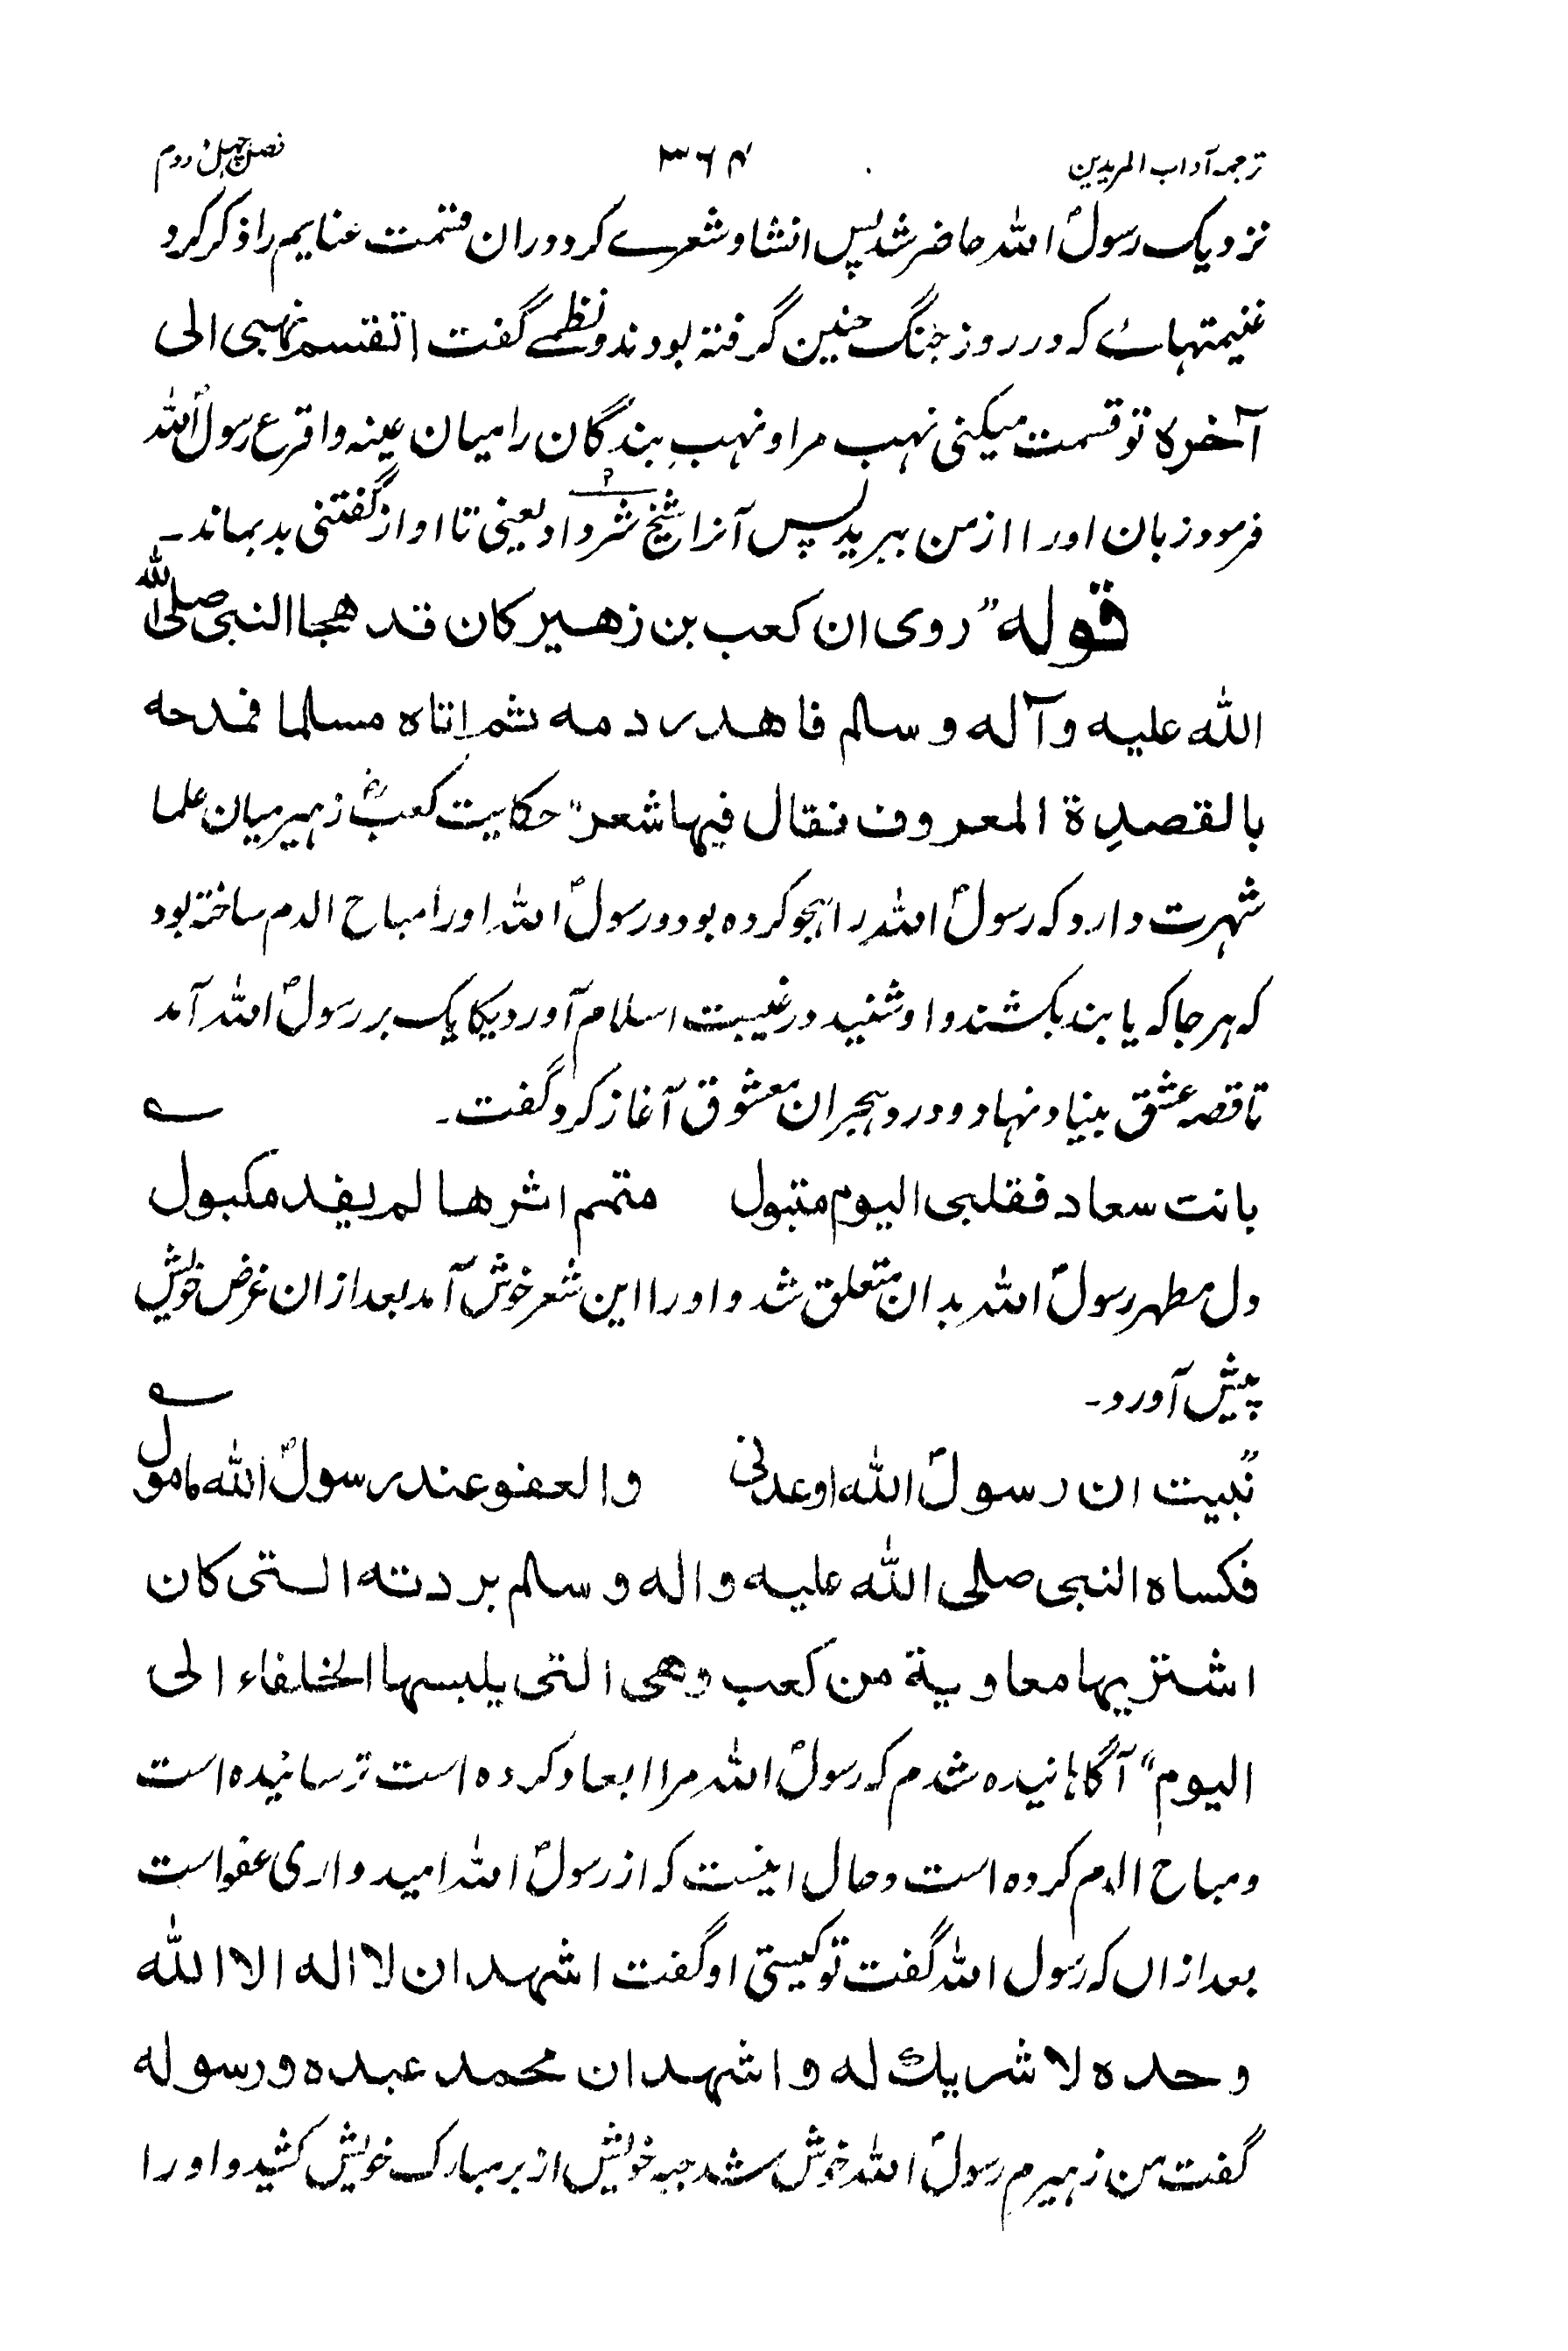 ترجمہ آداب المریدین ۳۶۴ فصل چہل و دوم
نزدیک رسولؐ اللہ حاضر شد پس انشاو شعرے کرد و دران قتمت عنایم را ذکر کرد
غنیمتہاے کہ در روز جنگ حنین گرفتہ بودند و نظمے گفت اتقسم نہبی الی
آخرہ تو قسمت میکنی نہب مرا و نہبِ بندگان را میان عینہ و اقرع رسولؐ اللہ
فرمود زبان اورا ازمن ببرید پس آنرا شیخ شرواد یعنی تا او از گفتنی بدبماند۔
قولہ ”روی ان کعب بن زھیر کان قد ھجا النبی صلی اللہ
اللہ علیہ وآلہ وسلم فاھدر دمہ ثم اتاہ مسلما فمدحہ
بالقصدِۃ المعروف نقال فیہا شعر“ حکایت کعبؓ زہیر میان علما
شہرت دارد کہ رسولؐ اللہ را ہجو کردہ بود و رسولؐ اللہ اورا مباح الدم ساختہ بود
کہ ہر جا کہ یابند بکشند و او شنید در غیبت اسلام آورد یکایک بر رسولؐ اللہ آمد
تا قصہ عشق بنیاد نہاد و درد ہجران معشوق آغاز کرد گفت۔ ؎
بانت سعاد فقلبی الیوم متبول متمم اثرھا لم یفد مکبول
دل مطہر رسولؐ اللہ بدان متعلق شد و اورا این شعر خوش آمد بعد ازان غرض خویش
پیش آورد۔ ؎
نُبیت ان رسولؐ اللہ اوعدنی والعفو عند رسولؐ اللہ مامول
فکساہ النبی صلی اللہ علیہ والہ وسلم بردتہ التی کان
اشتریہا معاویۃ من کعب وھی التی یلبسہا الخلفاء الی
الیوم“ آگاہانیدہ شدم کہ رسولؐ اللہ مرا ابعاد کردہ است ترسانیدہ است
و مباح الدم کردہ است و حال اینست کہ از رسولؐ اللہ امیدواری عفو است
بعد ازاں کہ رسول اللہ گفت تو کیستی او گفت اشہد ان لا الہ الا اللہ
وحدہ لا شریك لہ و اشہد ان محمد عبدہ و رسولہ
گفت من زہیرم رسولؐ اللہ خوش شد جبہ خویش از بر مبارک خویش کشید و اورا